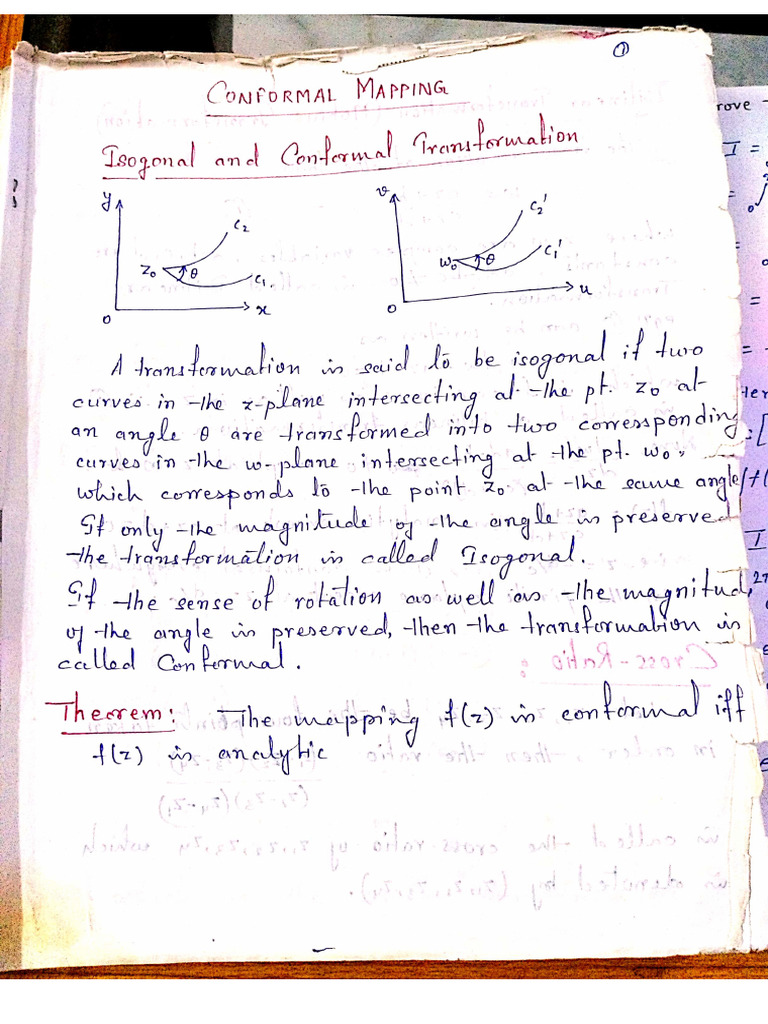 ①
CONFORMAL MAPPING
Isogonal and Conformal Transformation
y
C2
z0
θ
C1
x
O
v
C2'
w0
θ
C1'
u
O
A transformation is said to be isogonal if two
curves in the z-plane intersecting at the pt. z0 at
an angle θ are transformed into two corresponding
curves in the w-plane intersecting at the pt. w0,
which corresponds to the point z0 at the same angle
If only the magnitude of the angle is preserved
the transformation is called Isogonal.
If the sense of rotation as well as the magnitud
of the angle is preserved, then the transformation is
called Conformal.
Theorem: The mapping f(z) is conformal iff
f(z) is analytic
rove
I =
Cross-Ratio :